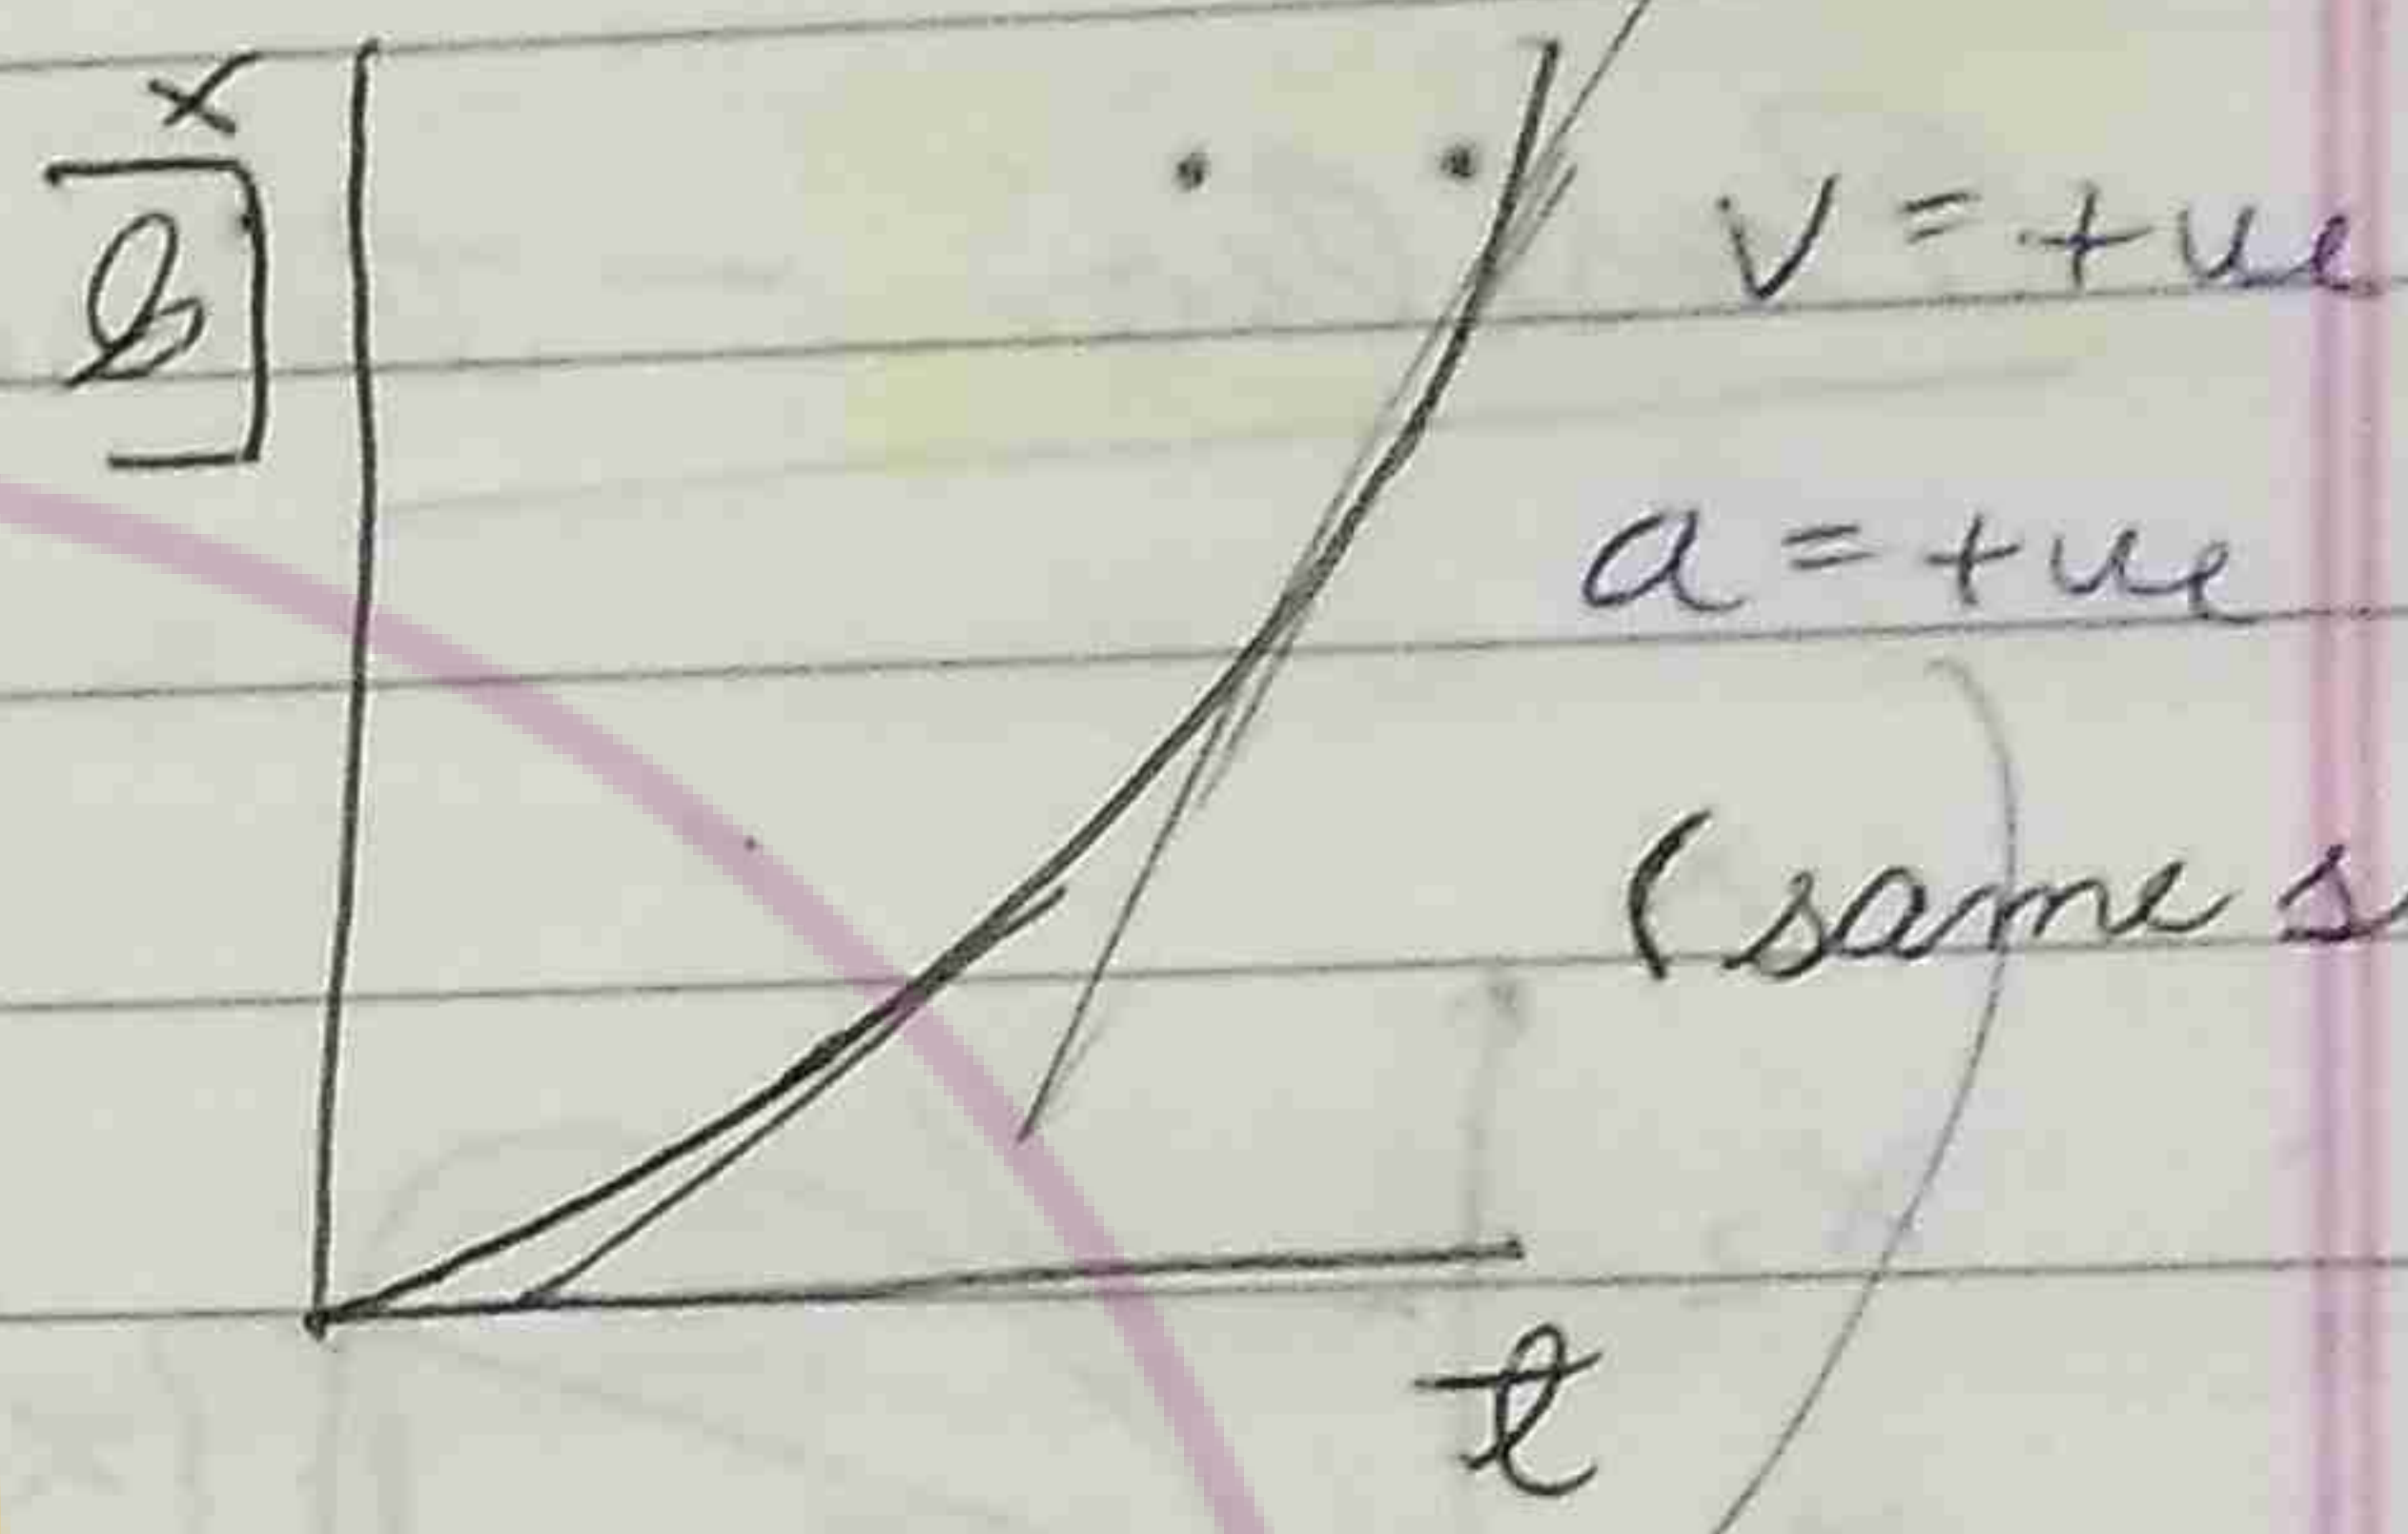 x
v = +ve
a = +ve
(same s
t